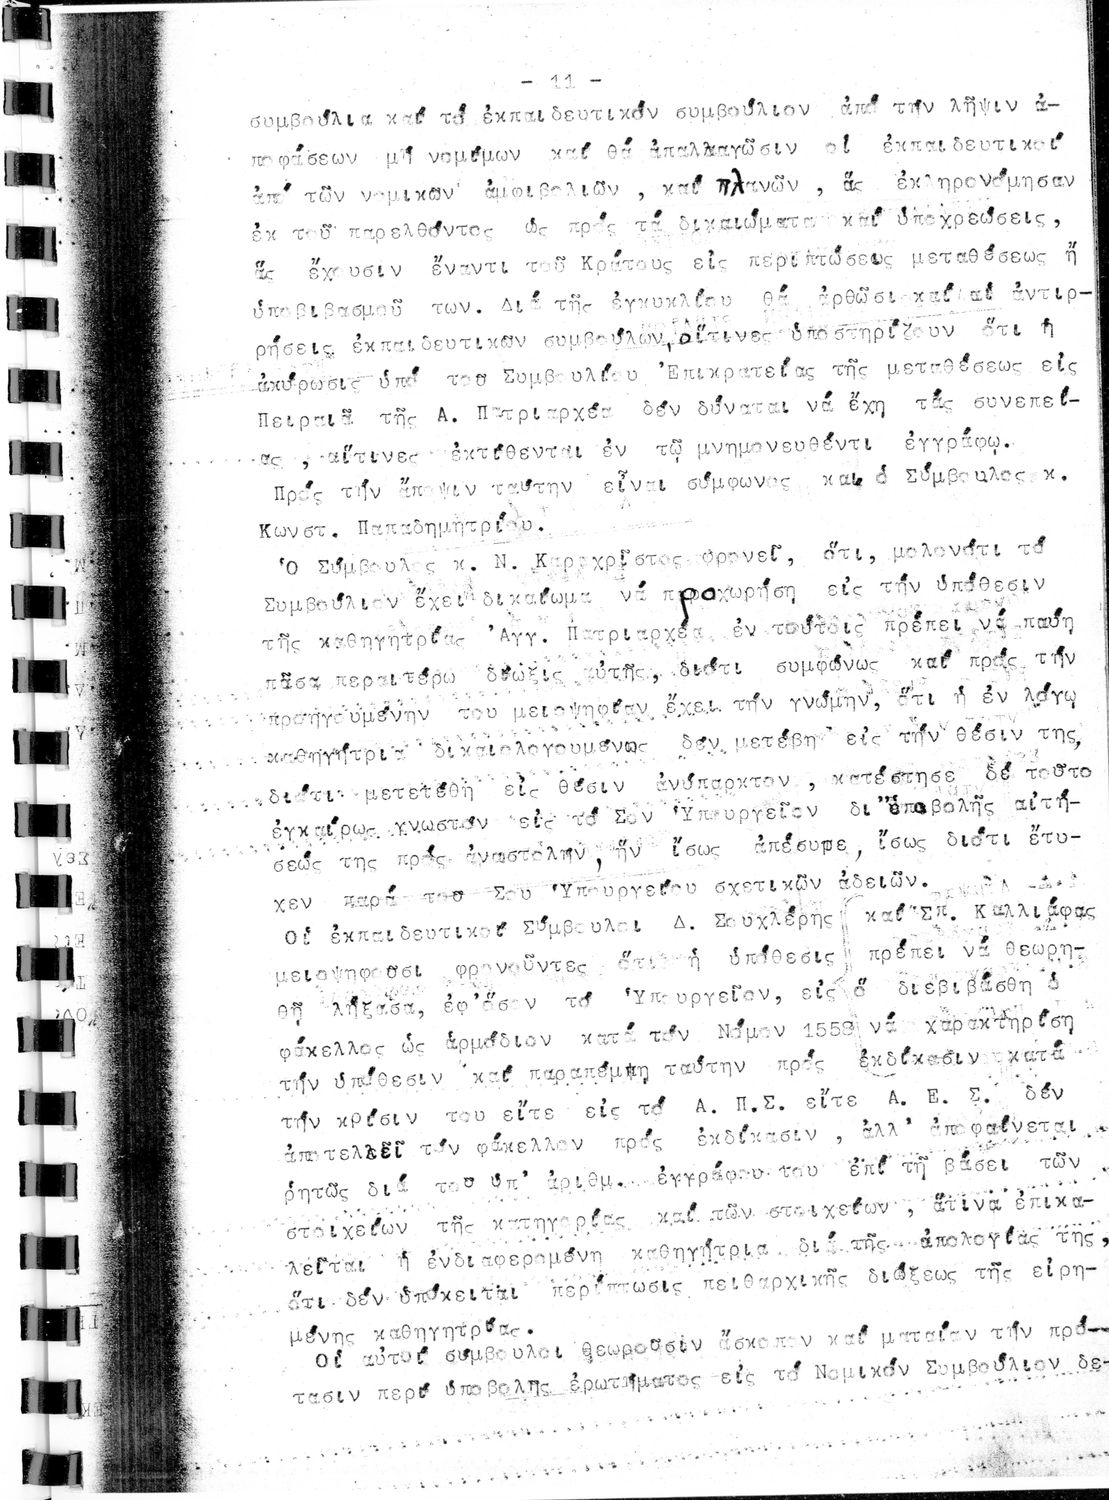 - 11 -
συμβούλια καί τό ἐκπαιδευτικόν συμβούλιον ἀπό τήν λῆψιν ἀ-
ποφάσεων μή νομίμων καί θά ἀπαλλαγῶσιν οἱ ἐκπαιδευτικοί
ἀπό τῶν νομικῶν ἀμφιβολιῶν , καί πλανῶν , ἅς ἐκληρονόμησαν
ἐκ τοῦ παρελθόντος ὡς πρός τά δικαιώματα καί ὑποχρεώσεις,
ἅς ἔχουσιν ἔναντι τοῦ Κράτους εἰς περίπτώσεις μεταθέσεως ἤ
ὑποβιβασμοῦ των. Διά τῆς ἐγκυκλίου θά ἀρθῶσι καί αἱ ἀντιρ-
ρήσεις ἐκπαιδευτικῶν συμβούλων, οἵτινες ὑποστηρίζουν ὅτι ἡ
ἀκύρωσις ὑπό του Συμβουλίου Ἐπικρατείας τῆς μεταθέσεως εἰς
Πειραιᾶ τῆς Α. Πατριαρχέα δέν δύναται νά ἔχη τάς συνεπεί-
ας , αἵτινες ἐκτίθενται ἐν τῷ μνημονευθέντι ἐγγράφῳ.
Πρός τήν ἄποψιν ταύτην εἶναι σύμφωνος καί ὁ Σύμβουλος κ.
Κωνστ. Παπαδημητρίου.
Ὁ Σύμβουλος κ. Ν. Καραχρῖστος φρονεῖ, ὅτι, μολονότι τό
Συμβούλιον ἔχει δικαίωμα νά προχωρήση εἰς τήν ὑπόθεσιν
τῆς καθηγητρίας Ἀγγ. Πατριαρχέα ἐν τούτοις πρέπει νά παύη
πᾶσα περαιτέρω δίωξις αὐτῆς, διότι συμφώνως καί πρός τήν
προηγουμένην του μειοψηφίαν ἔχει τήν γνώμην, ὅτι ἡ ἐν λόγῳ
καθηγήτρια δικαιολογουμένως δέν μετέβη εἰς τήν θέσιν της,
διότι μετετέθη εἰς θέσιν ἀνύπαρκτον , κατέστησε δέ τοῦτο
ἐγκαίρως γνωστόν εἰς τό Σόν Ὑπουργεῖον δι' ὑποβολῆς αἰτή-
σεώς της πρός ἀναστολήν, ἥν ἴσως ἀπέσυρε, ἴσως διότι ἔτυ-
χεν παρά του Σου Ὑπουργείου σχετικῶν ἀδειῶν.
Οἱ ἐκπαιδευτικοί Σύμβουλοι Δ. Σουχλέρης καί Σπ. Καλλιάφας
μειοψηφοῦσι φρονοῦντες ὅτι ἡ ὑπόθεσις πρέπει νά θεωρη-
θῇ λήξασα, ἐφ'ὅσον τό Ὑπουργεῖον, εἰς ὅ διεβιβάσθη ὁ
φάκελλος ὡς ἁρμόδιον κατά τόν Νόμον 1558 νά χαρακτηρίση
τήν ὑπόθεσιν καί παραπέμψη ταύτην πρός ἐκδίκασιν κατά
τήν κρίσιν του εἴτε εἰς τό Α. Π.Σ. εἴτε Α. Ε. Σ. δέν
ἀποτελλεῖ τόν φάκελλον πρός ἐκδίκασιν , ἀλλ' ἀποφαίνεται
ῥητῶς διά του ὑπ' ἀριθμ. ἐγγράφου του ἐπί τῇ βάσει τῶν
στοιχείων τῆς κατηγορίας καί τῶν στοιχείων , ἅτινα ἐπικα-
λεῖται ἡ ἐνδιαφερομένη καθηγήτρια διά τῆς ἀπολογίας της,
ὅτι δέν ὑπόκειται περίπτωσις πειθαρχικῆς διώξεως τῆς εἰρη-
μένης καθηγητρίας.
Οἱ αὐτοί σύμβουλοι θεωροῦσιν ἄσκοπον καί ματαίαν τήν πρό-
τασιν περί ὑποβολῆς ἐρωτήματος εἰς τό Νομικόν Συμβούλιον δε-